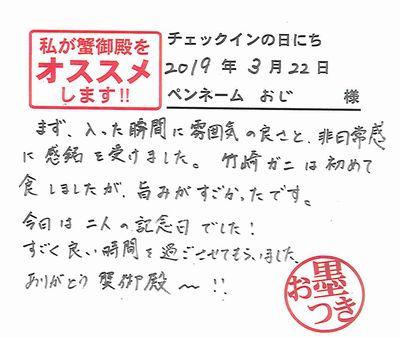 私が蟹御殿を
オススメ
します!!
チェックインの日にち
2019年3月22日
ペンネーム おじ 様
まず、入った瞬間に雰囲気の良さと、非日常感
に感銘を受けました。竹崎ガニは初めて
食しましたが、旨みがすごかったです。
今日は二人の記念日でした!
すごく良い時間を過ごさせてもらいました。
ありがとう蟹御殿〜!!
お墨つき